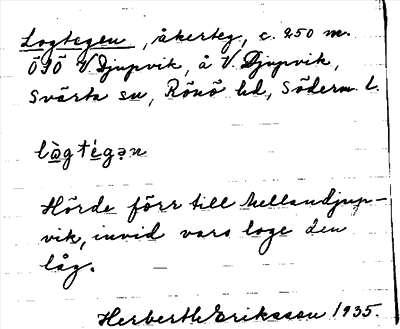 Logtegen, åkerteg, c. 250 m.
ÖSÖ V Djupvik, å V. Djupvik,
Svärta sn, Rönö hd, Söderm. l.
lògtégən
Hörde förr till Mellandjup-
vik, invid vars loge den
låg.
Herberth Eriksson 1935.